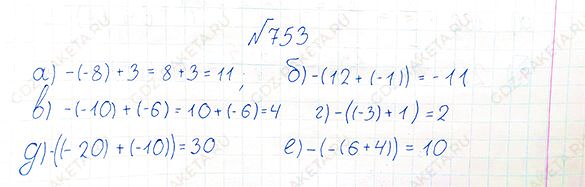 №753
а) -(-8) + 3 = 8 + 3 = 11; б) -(12 + (-1)) = -11
в) -(-10) + (-6) = 10 + (-6) = 4 г) -((-3) + 1) = 2
д) -((-20) + (-10)) = 30 е) -(-(6 + 4)) = 10